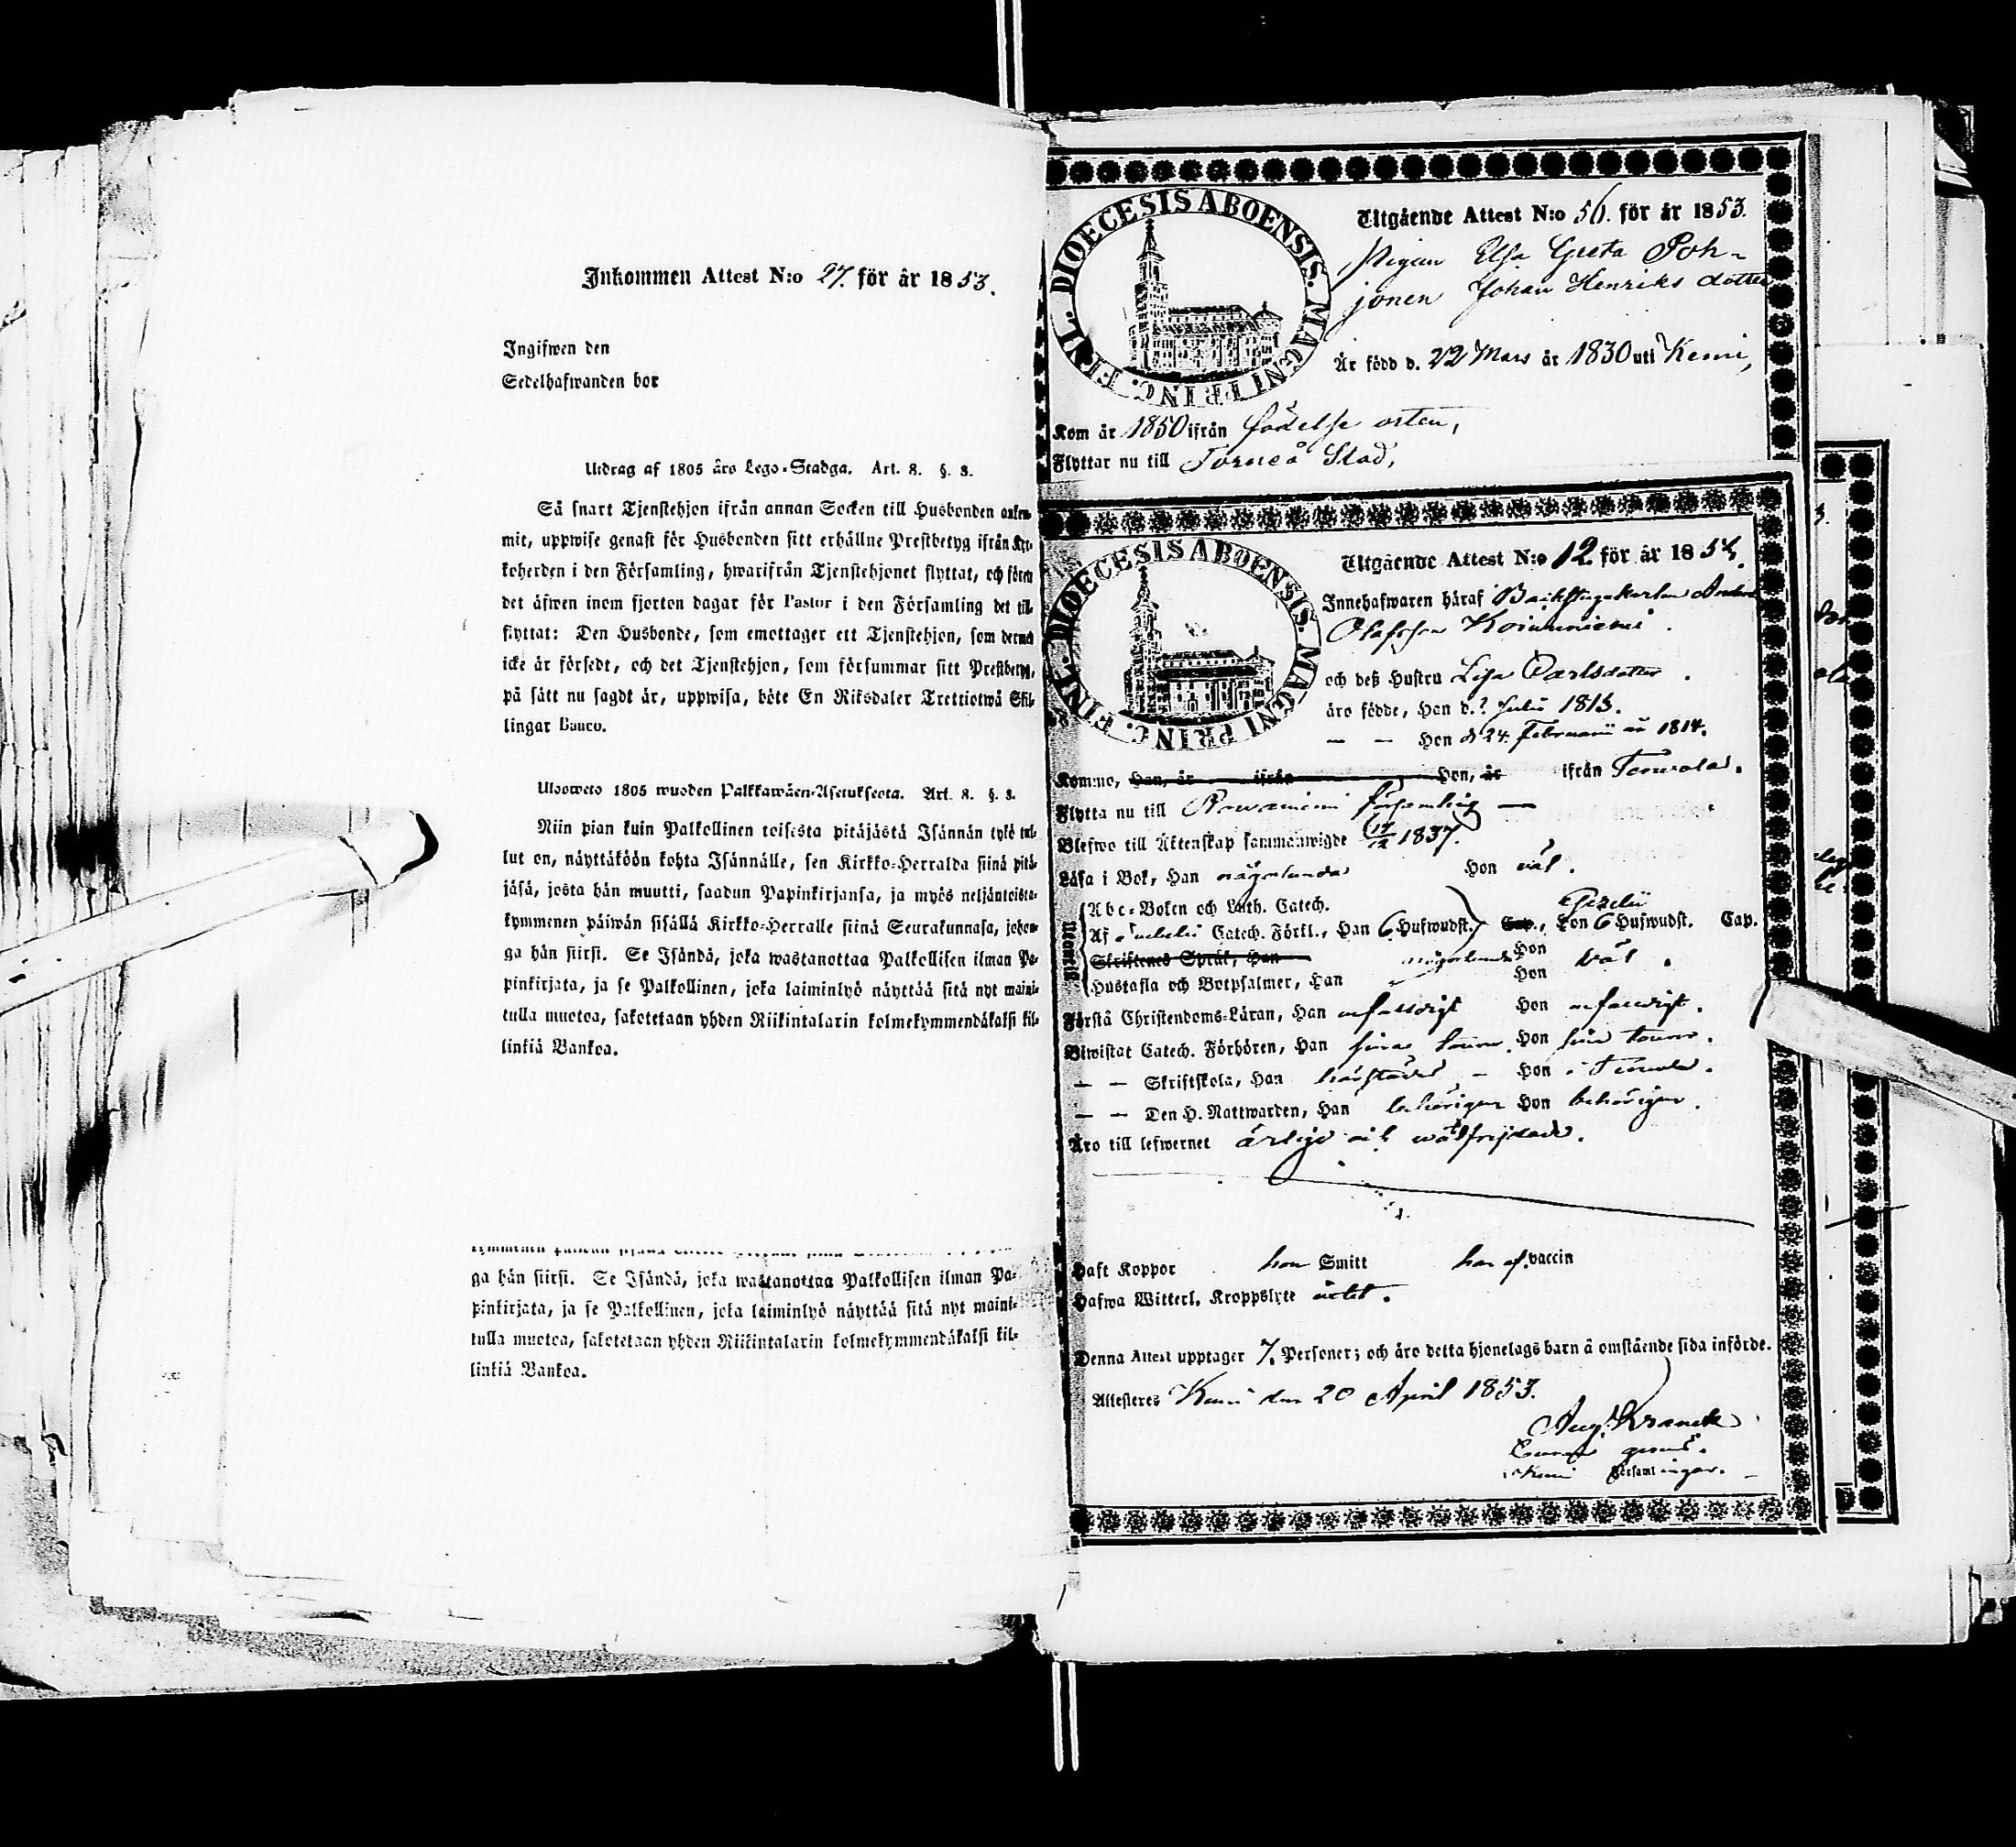 Inkommen Attest N:o 27. för år 1853.
Ingifwen den
Sedelhafwanden bor
Utdrag af 1805 års Lego-Stadga. Art. 8. §. 8.
Så snart Tjenstehjon ifrån annan Socken till Husbonden ankom-
mit, uppwise genast för Husbonden sitt erhållne Prestbetyg ifrån Kyr-
koherden i den Församling, hwarifrån Tjenstehjonet flyttat, och förete
det äfwen inom fjorton dagar för Pastor i den Församling det till-
flyttat: Den Husbonde, som emottager ett Tjenstehjon, som dermed
icke är försedt, och det Tjenstehjon, som försummar sitt Prestbetyg,
på sätt nu sagdt är, uppwisa, böte En Riksdaler Trettiotwå Skil-
lingar Banco.
Ulosweto 1805 wuoden Palkkawäen-Asetuksesta. Art. 8. §. 8.
Niin pian kuin Palkollinen toisesta pitäjästä Isännän tykö tul-
lut on, näyttäköön kohta Isännälle, sen Kirkko-Herralda siinä pitä-
jäsä, josta hän muutti, saadun Papinkirjansa, ja myös neljäntoista-
kymmenen päiwän sisällä Kirkko-Herralle siinä Seurakunnasa, johon-
ga hän siirsi. Se Isändä, joka wastanottaa Palkollisen ilman Pa-
pinkirjata, ja se Palkollinen, joka laiminlyö näyttää sitä nyt maini-
tulla muotoa, sakotetaan yhden Riikintalarin kolmekymmendäkaksi kil-
linkiä Bankoa.
ga hän siirsi. Se Isändä, joka wastanottaa Palkollisen ilman Pa-
pinkirjata, ja se Palkollinen, joka laiminlyö näyttää sitä nyt maini-
tulla muotoa, sakotetaan yhden Riikintalarin kolmekymmendäkaksi kil-
linkiä Bankoa.
DIOECESIS ABOENSIS. MAGNI PRINC. FINL.
Utgående Attest N:o 56. för år 1853.
Pigan Elsa Greta Poh-
jonen Johan Henriks dotter
Är född d. 22 Mars år 1830 uti Kemi,
Kom år 1850 ifrån födelse orten,
Flyttar nu till Torneå Stad,
DIOECESIS ABOENSIS. MAGNI PRINC. FINL.
Utgående Attest N:o 12. för år 185
Innehafwaren häraf Backstugukarlen Anders
Olafsson Koivuniemi.
och deß Hustru Lisa Carlsdotter.
äro födde, Han d. ? Julii 1813.
— — Hon d 24. Februarii år 1814.
Kommo, Han, år ifrån Hon, år ifrån Tervola.
Flytta nu till Rovaniemi församling —
Blefwo till Äktenskap sammanwigde 1837.
Läsa i Bok, Han någorlunda Hon väl.
Abc-Boken och Luth. Catech.
Af Catech. Förkl., Han 6 Hufwudst. Cap., Hon 6 Hufwudst. Cap.
Skriftenes Språk, Han någorlunda Hon väl.
Hustafla och Botpsalmer, Han Hon
Förstå Christendoms-Läran, Han enfaldigt Hon enfaldigt.
Biwistat Catech. Förhören, Han sina Hon sina
— — Skriftskola, Han härstädes - Hon i Tervola.
— — Den H. Nattwarden, Han behörigen Hon behörigen.
Äro till lefwernet ärlige och wälfrejdade.
Haft Koppor hon Smitt han af vaccin
Hafwa Witterl. Kroppslyte intet.
Denna Attest upptager 7. Personer; och äro detta hjonelags barn å omstående sida införde.
Attesteres Kemi den 20 April 1853.
Aug. Kranck
Kemi Församlingar.